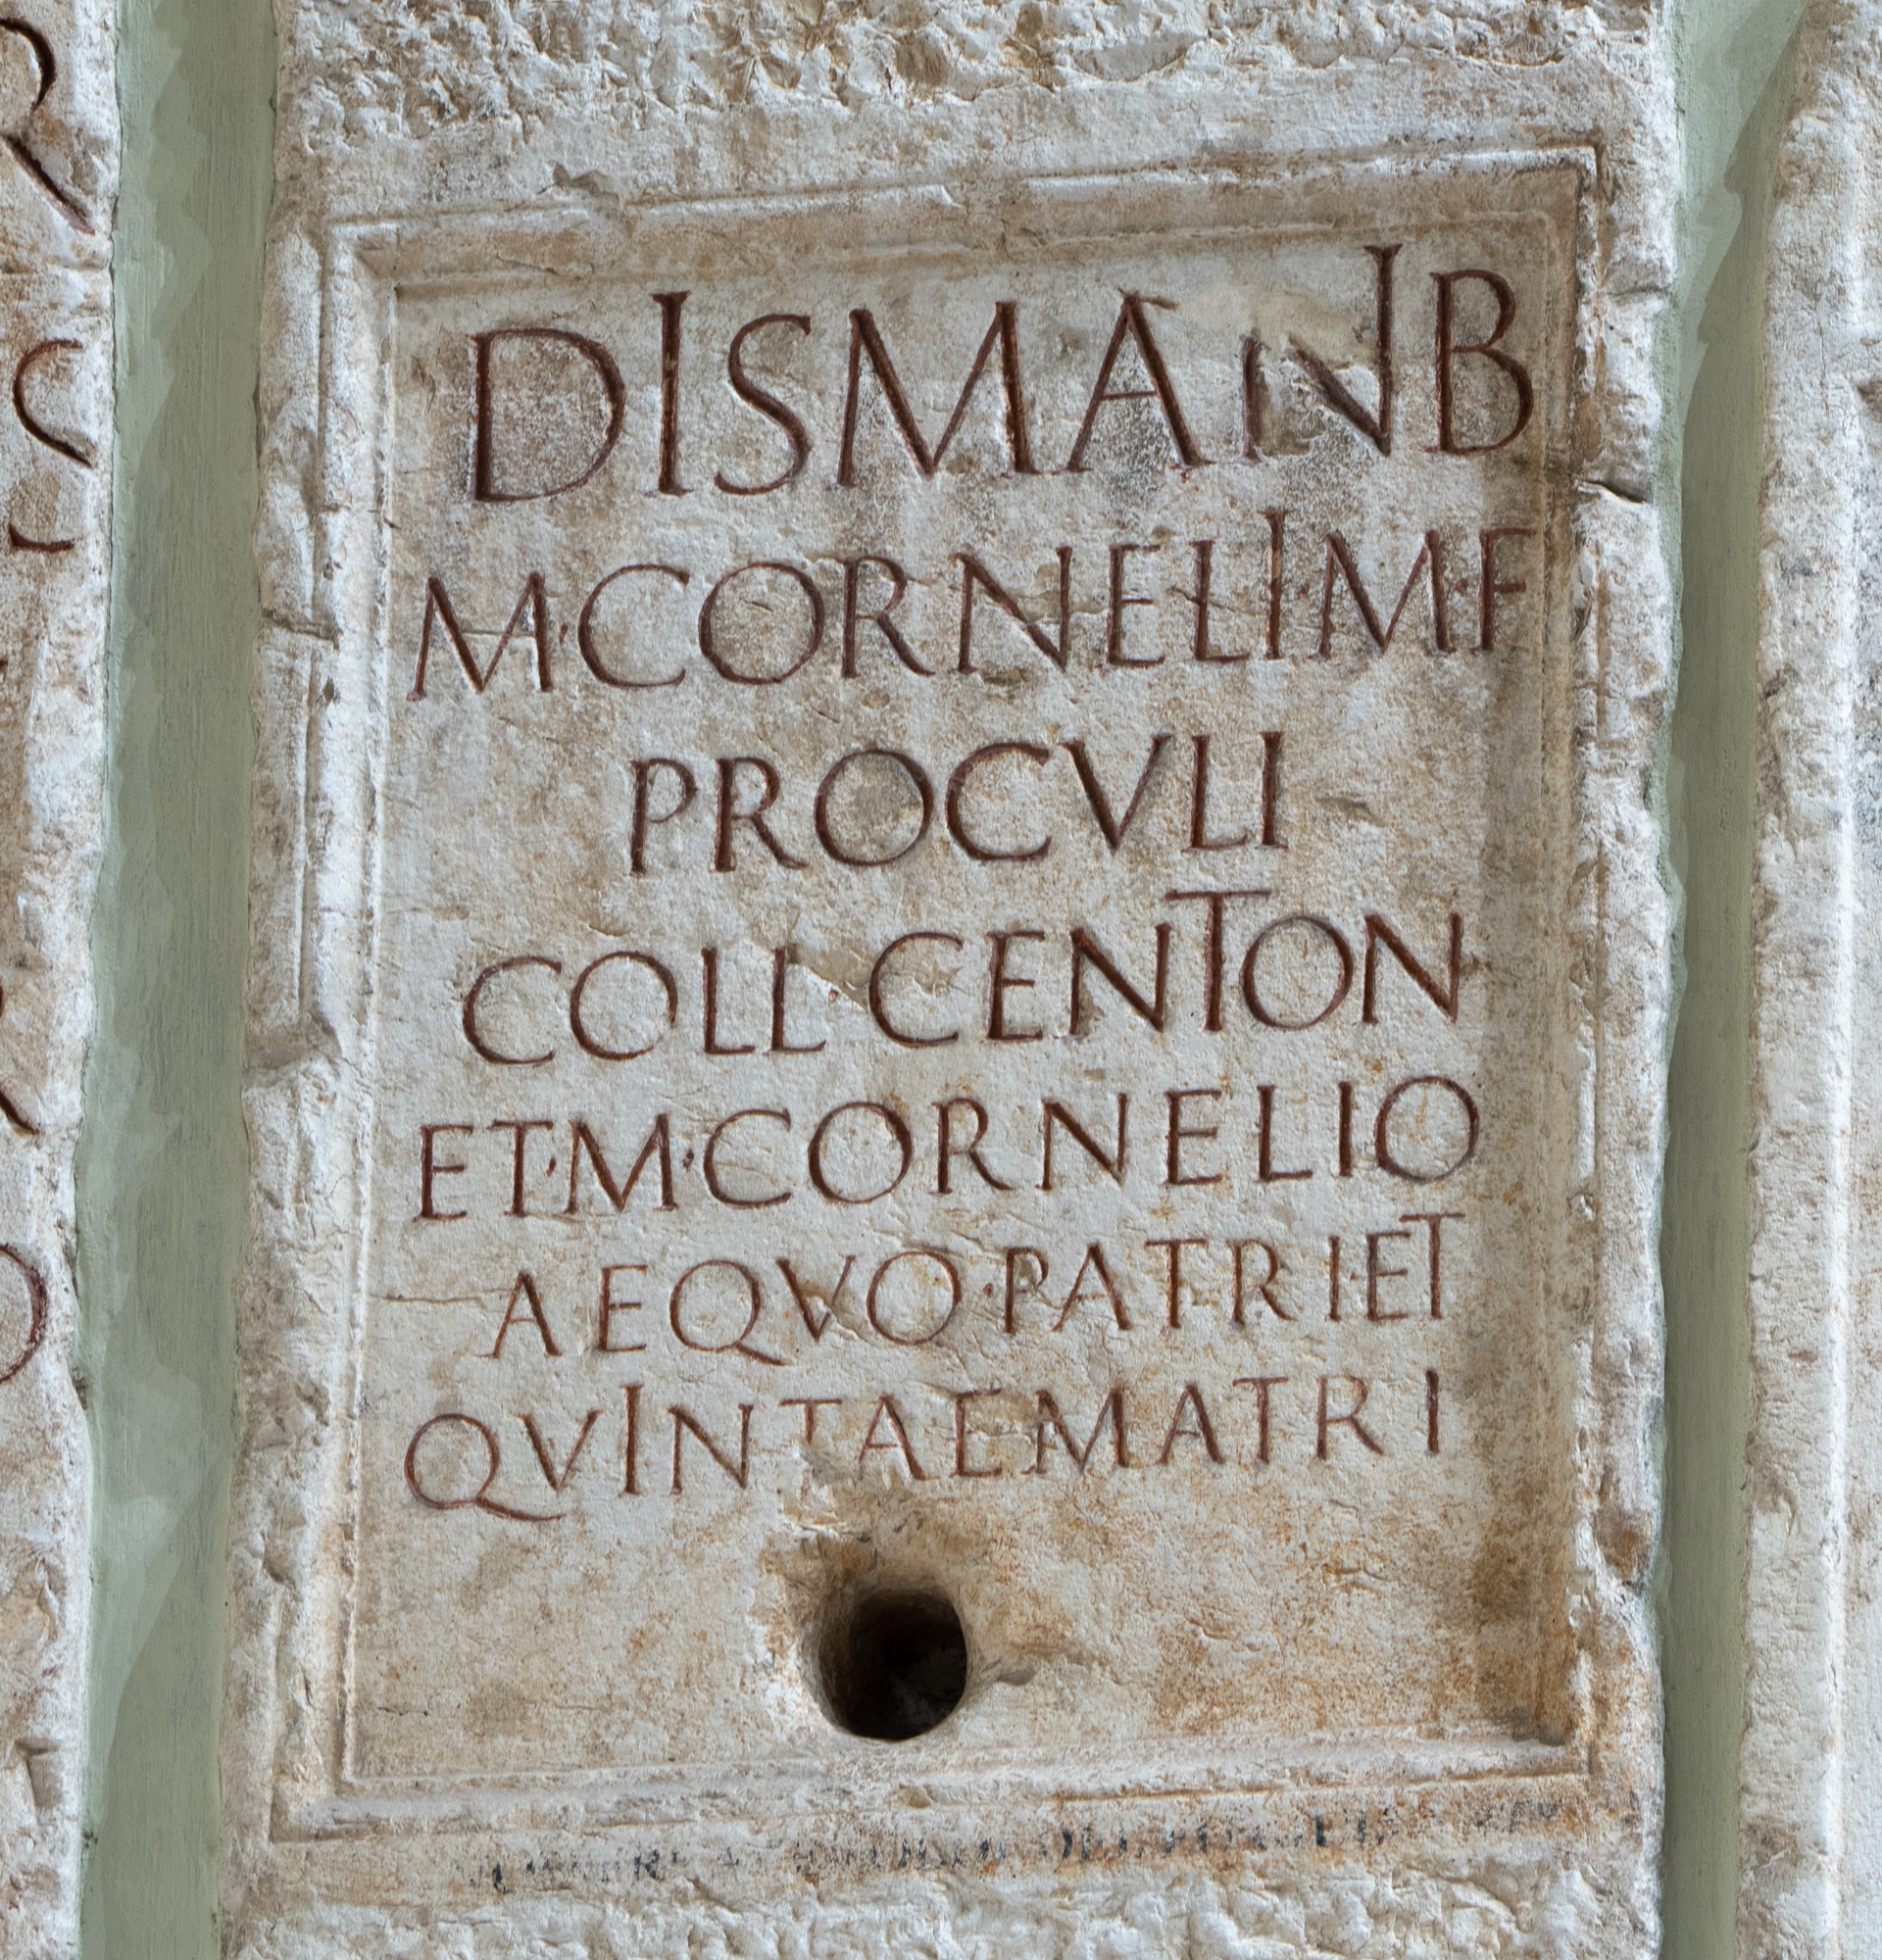 DIS MANIB
M·CORNELI M·F
PROCVLI
COLL CENTON
ET·M·CORNELIO
AEQVO·PATRI·ET
QVINTAE MATRI